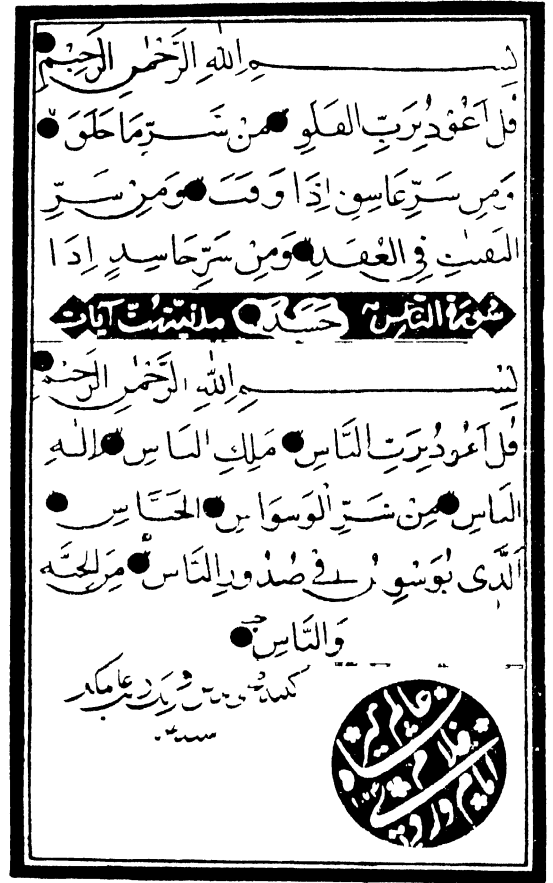 بسم الله الرحمن الرحيم
قل اعوذ برب الفلق من شر ما خلق
ومن شر غاسق اذا وقب ومن شر
النفثت في العقد ومن شر حاسد اذا
سورة الناس حسد مدنية ست آيات
بسم الله الرحمن الرحيم
قل اعوذ برب الناس ملك الناس اله
الناس من شر الوسواس الخناس
الذى يوسوس فى صدور الناس من الجنة
والناس
عالم گیر
شاه
غلام
امام ویردی